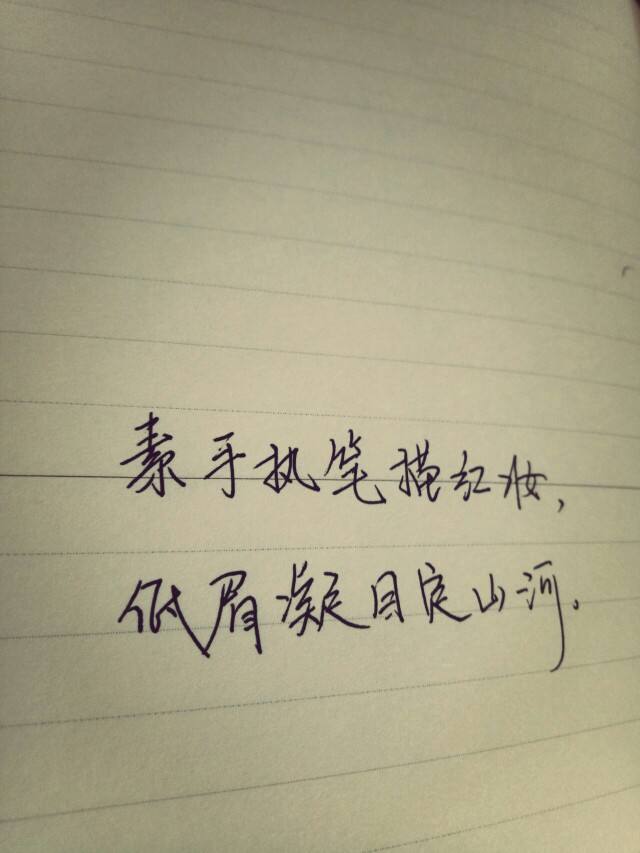 素手执笔描红妆，
低眉凝目定山河。